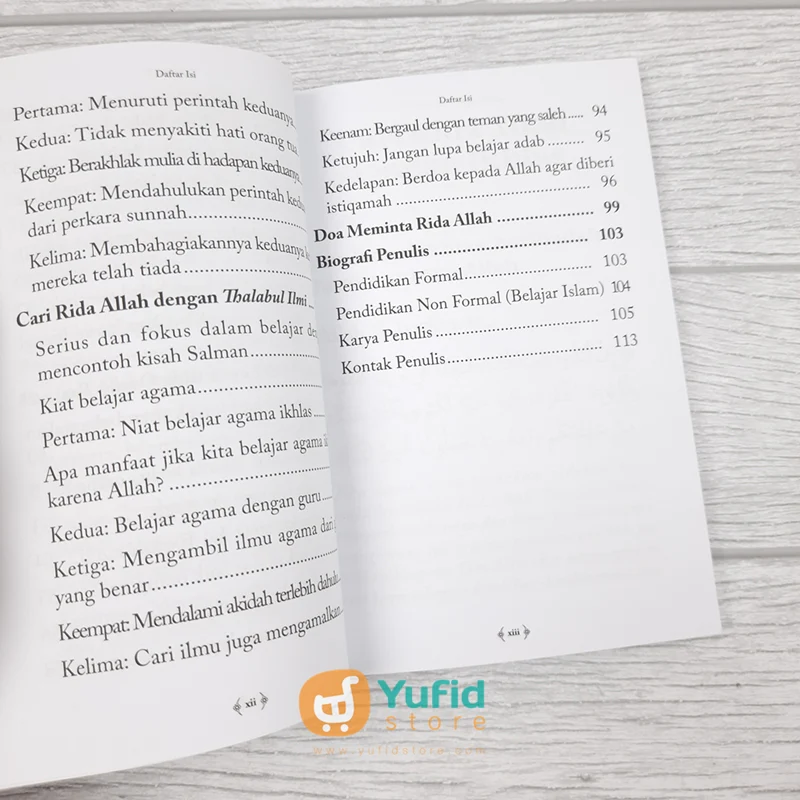 Daftar Isi
Pertama: Menuruti perintah keduanya
Kedua: Tidak menyakiti hati orang tua
Ketiga: Berakhlak mulia di hadapan keduanya
Keempat: Mendahulukan perintah
dari perkara sunnah..............................
Kelima: Membahagiakannya keduanya
mereka telah tiada..............................
Cari Rida Allah dengan Thalabul Ilmi...
Serius dan fokus dalam belajar
mencontoh kisah Salman....................
Kiat belajar agama..............................
Pertama: Niat belajar agama ikhlas......
Apa manfaat jika kita belajar agama
karena Allah?....................................
Kedua: Belajar agama dengan guru.....
Ketiga: Mengambil ilmu agama dari
yang benar..........................................
Keempat: Mendalami akidah terlebih dahulu
Kelima: Cari ilmu juga mengamalkan
xii
Daftar Isi
Keenam: Bergaul dengan teman yang saleh ..... 94
Ketujuh: Jangan lupa belajar adab ......... 95
Kedelapan: Berdoa kepada Allah agar diberi
istiqamah ............................................. 96
Doa Meminta Rida Allah ..................... 99
Biografi Penulis ................................. 103
Pendidikan Formal............................ 103
Pendidikan Non Formal (Belajar Islam) 104
Karya Penulis.................................... 105
Kontak Penulis.................................. 113
xiii
Yufid
store
www.yufidstore.com